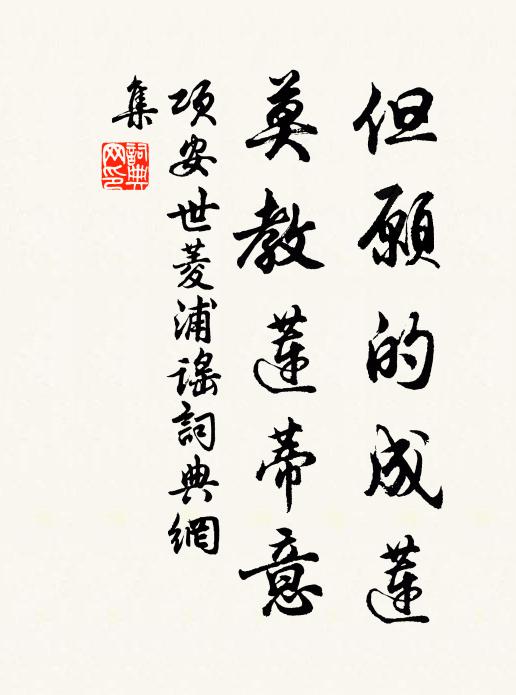 但願的成蓮
莫教蓮蒂意
項安世菱浦謠詞典網
集
詞典網印